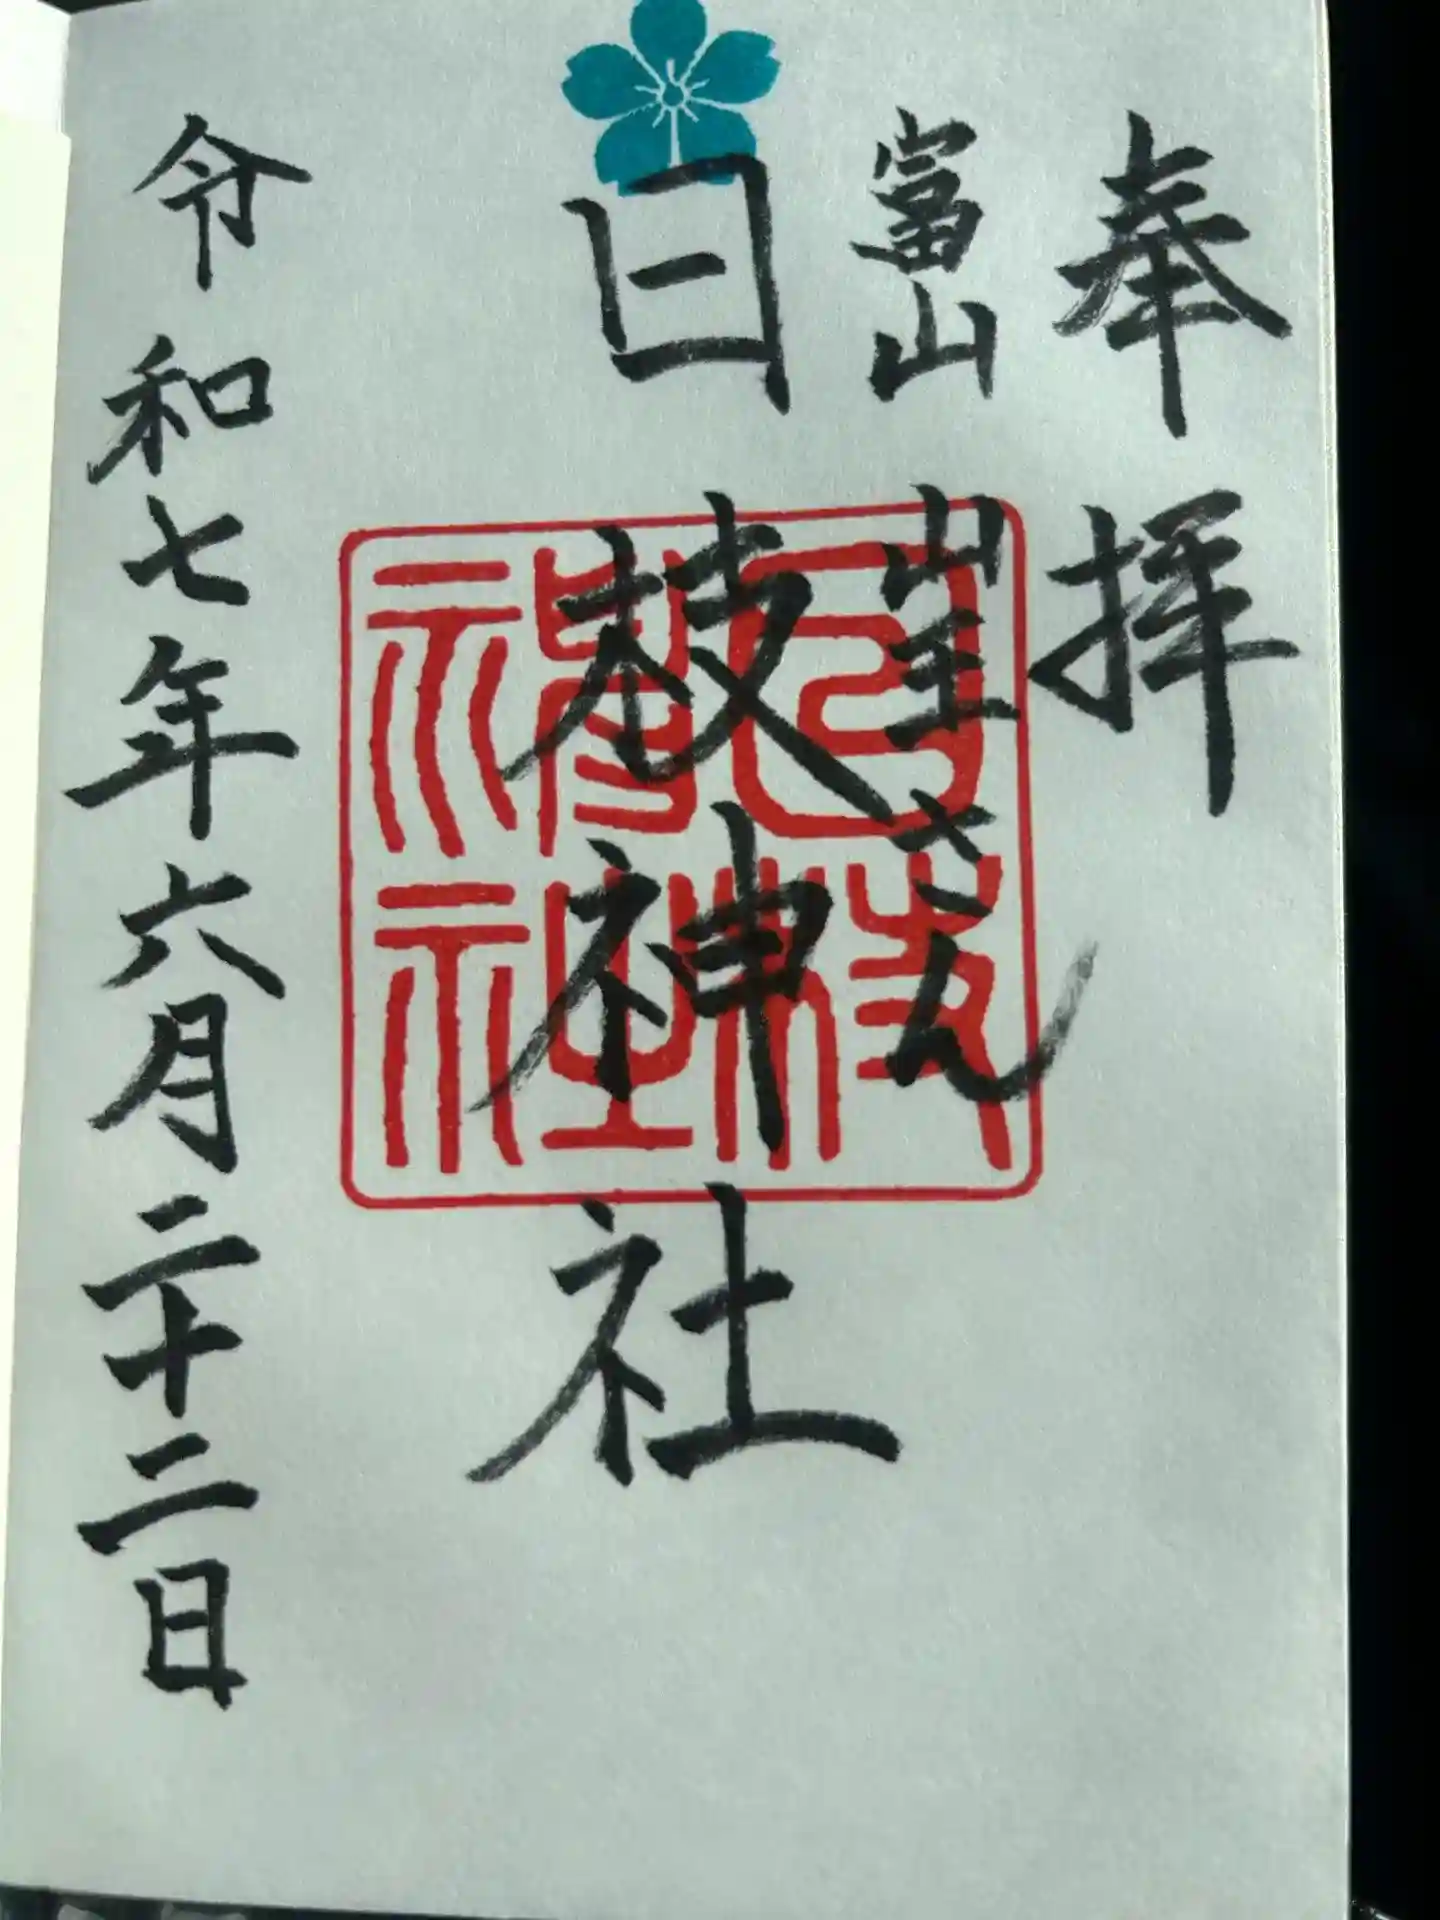 奉拝
富山
山王さん
日枝神社
日枝神社
令和七年六月二十二日